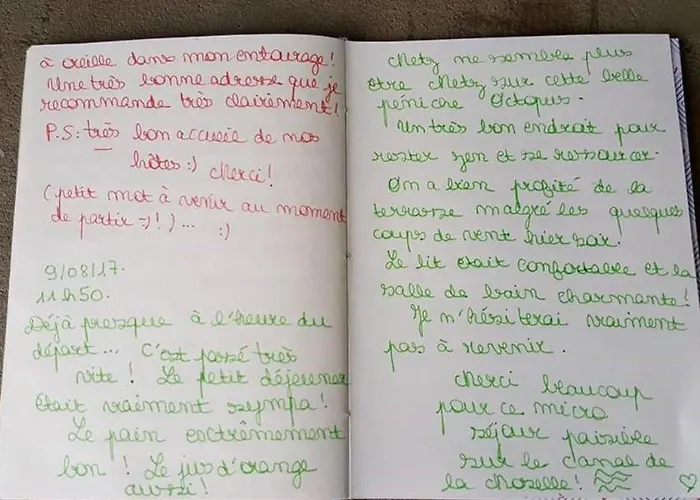 à oreille dans mon entourage!
Une très bonne adresse que je
recommande très clairement!
P.S: très bon accueil de nos
hôtes :) Merci!
(petit mot à venir au moment
de partir =)!)... :)
9/08/17.
11h50.
Déjà presque à l'heure du
départ... C'est passé très
vite! Le petit déjeuner
était vraiment sympa!
Le pain extrêmement
bon! Le jus d'orange
aussi!
Metz me semble plus
être Metz sur cette belle
péniche Octopus.
Un très bon endroit pour
rester zen et se ressourcer.
On a bien profité de la
terrasse malgré les quelques
coups de vent hier soir.
Le lit était confortable et la
salle de bain charmante!
Je n'hésiterai vraiment
pas à revenir.
Merci beaucoup
pour ce micro
séjour paisible
sur le canal de
la Moselle!